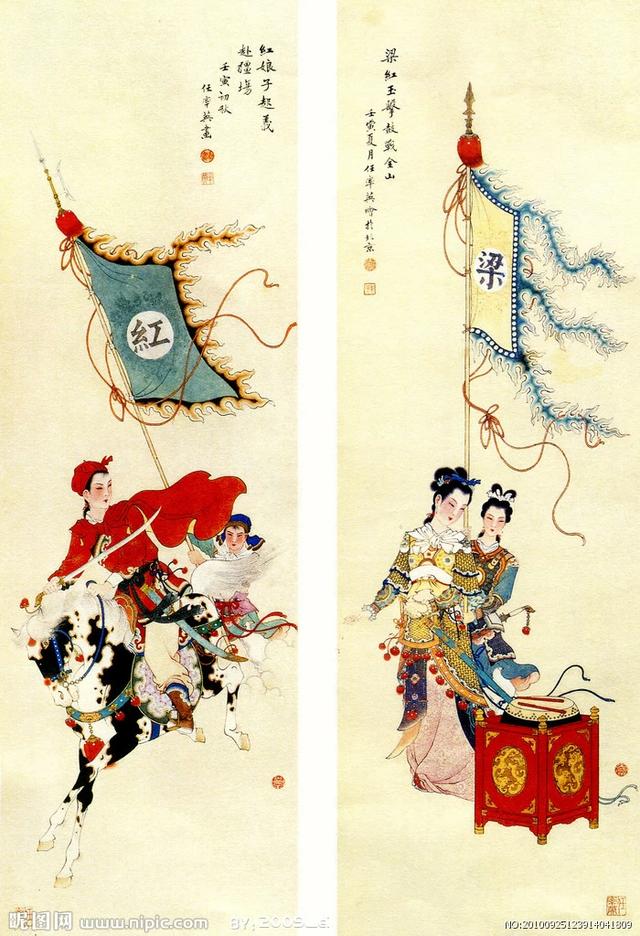 紅娘子起義
赴疆場
壬寅初秋
任率英畫
紅
梁紅玉擊鼓戰金山
壬寅夏月任率英繪於北京
梁
昵图网 www.nipic.com
NO:20100925123914041809